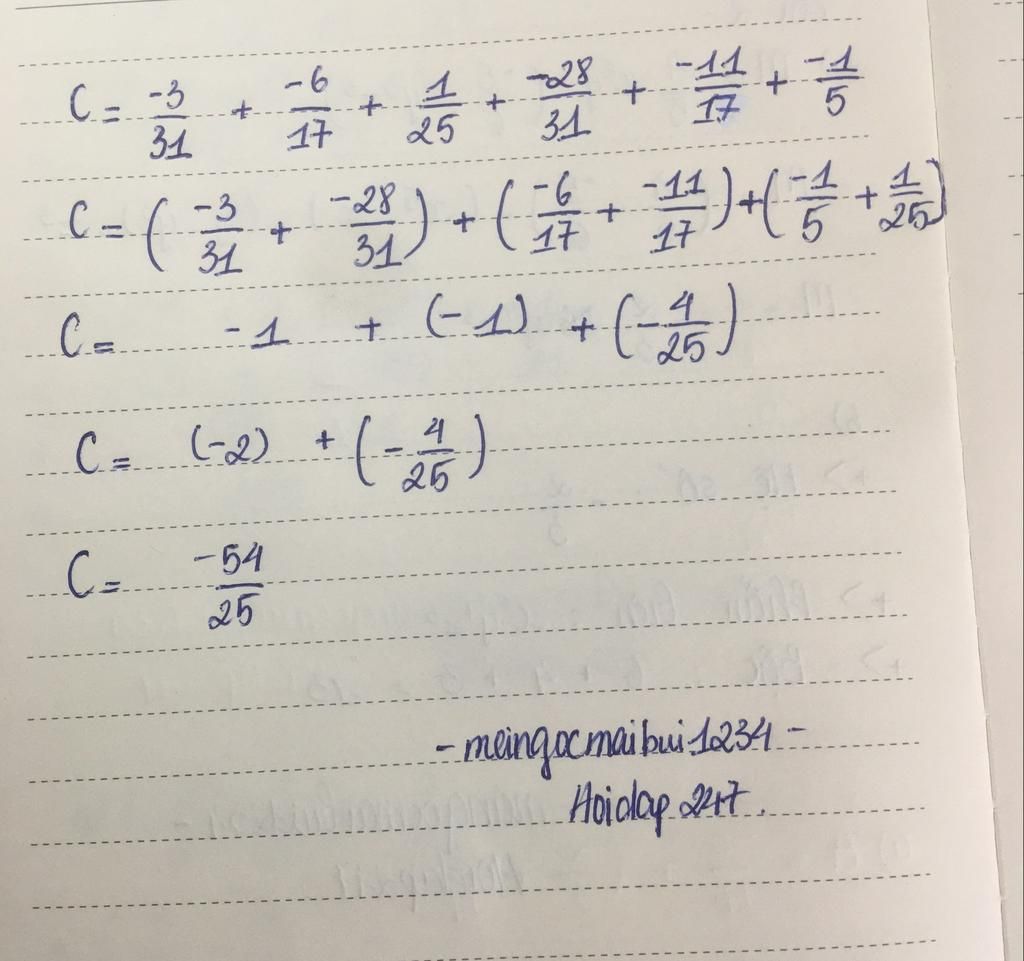 C = -3/31 + -6/17 + 1/25 + -28/31 + -11/17 + -1/5
C = (-3/31 + -28/31) + (-6/17 + -11/17) + (-1/5 + 1/25)
C = -1 + (-1) + (-4/25)
C = (-2) + (-4/25)
C = -54/25
- meingocmaibui1234 -
Hoidap 247.